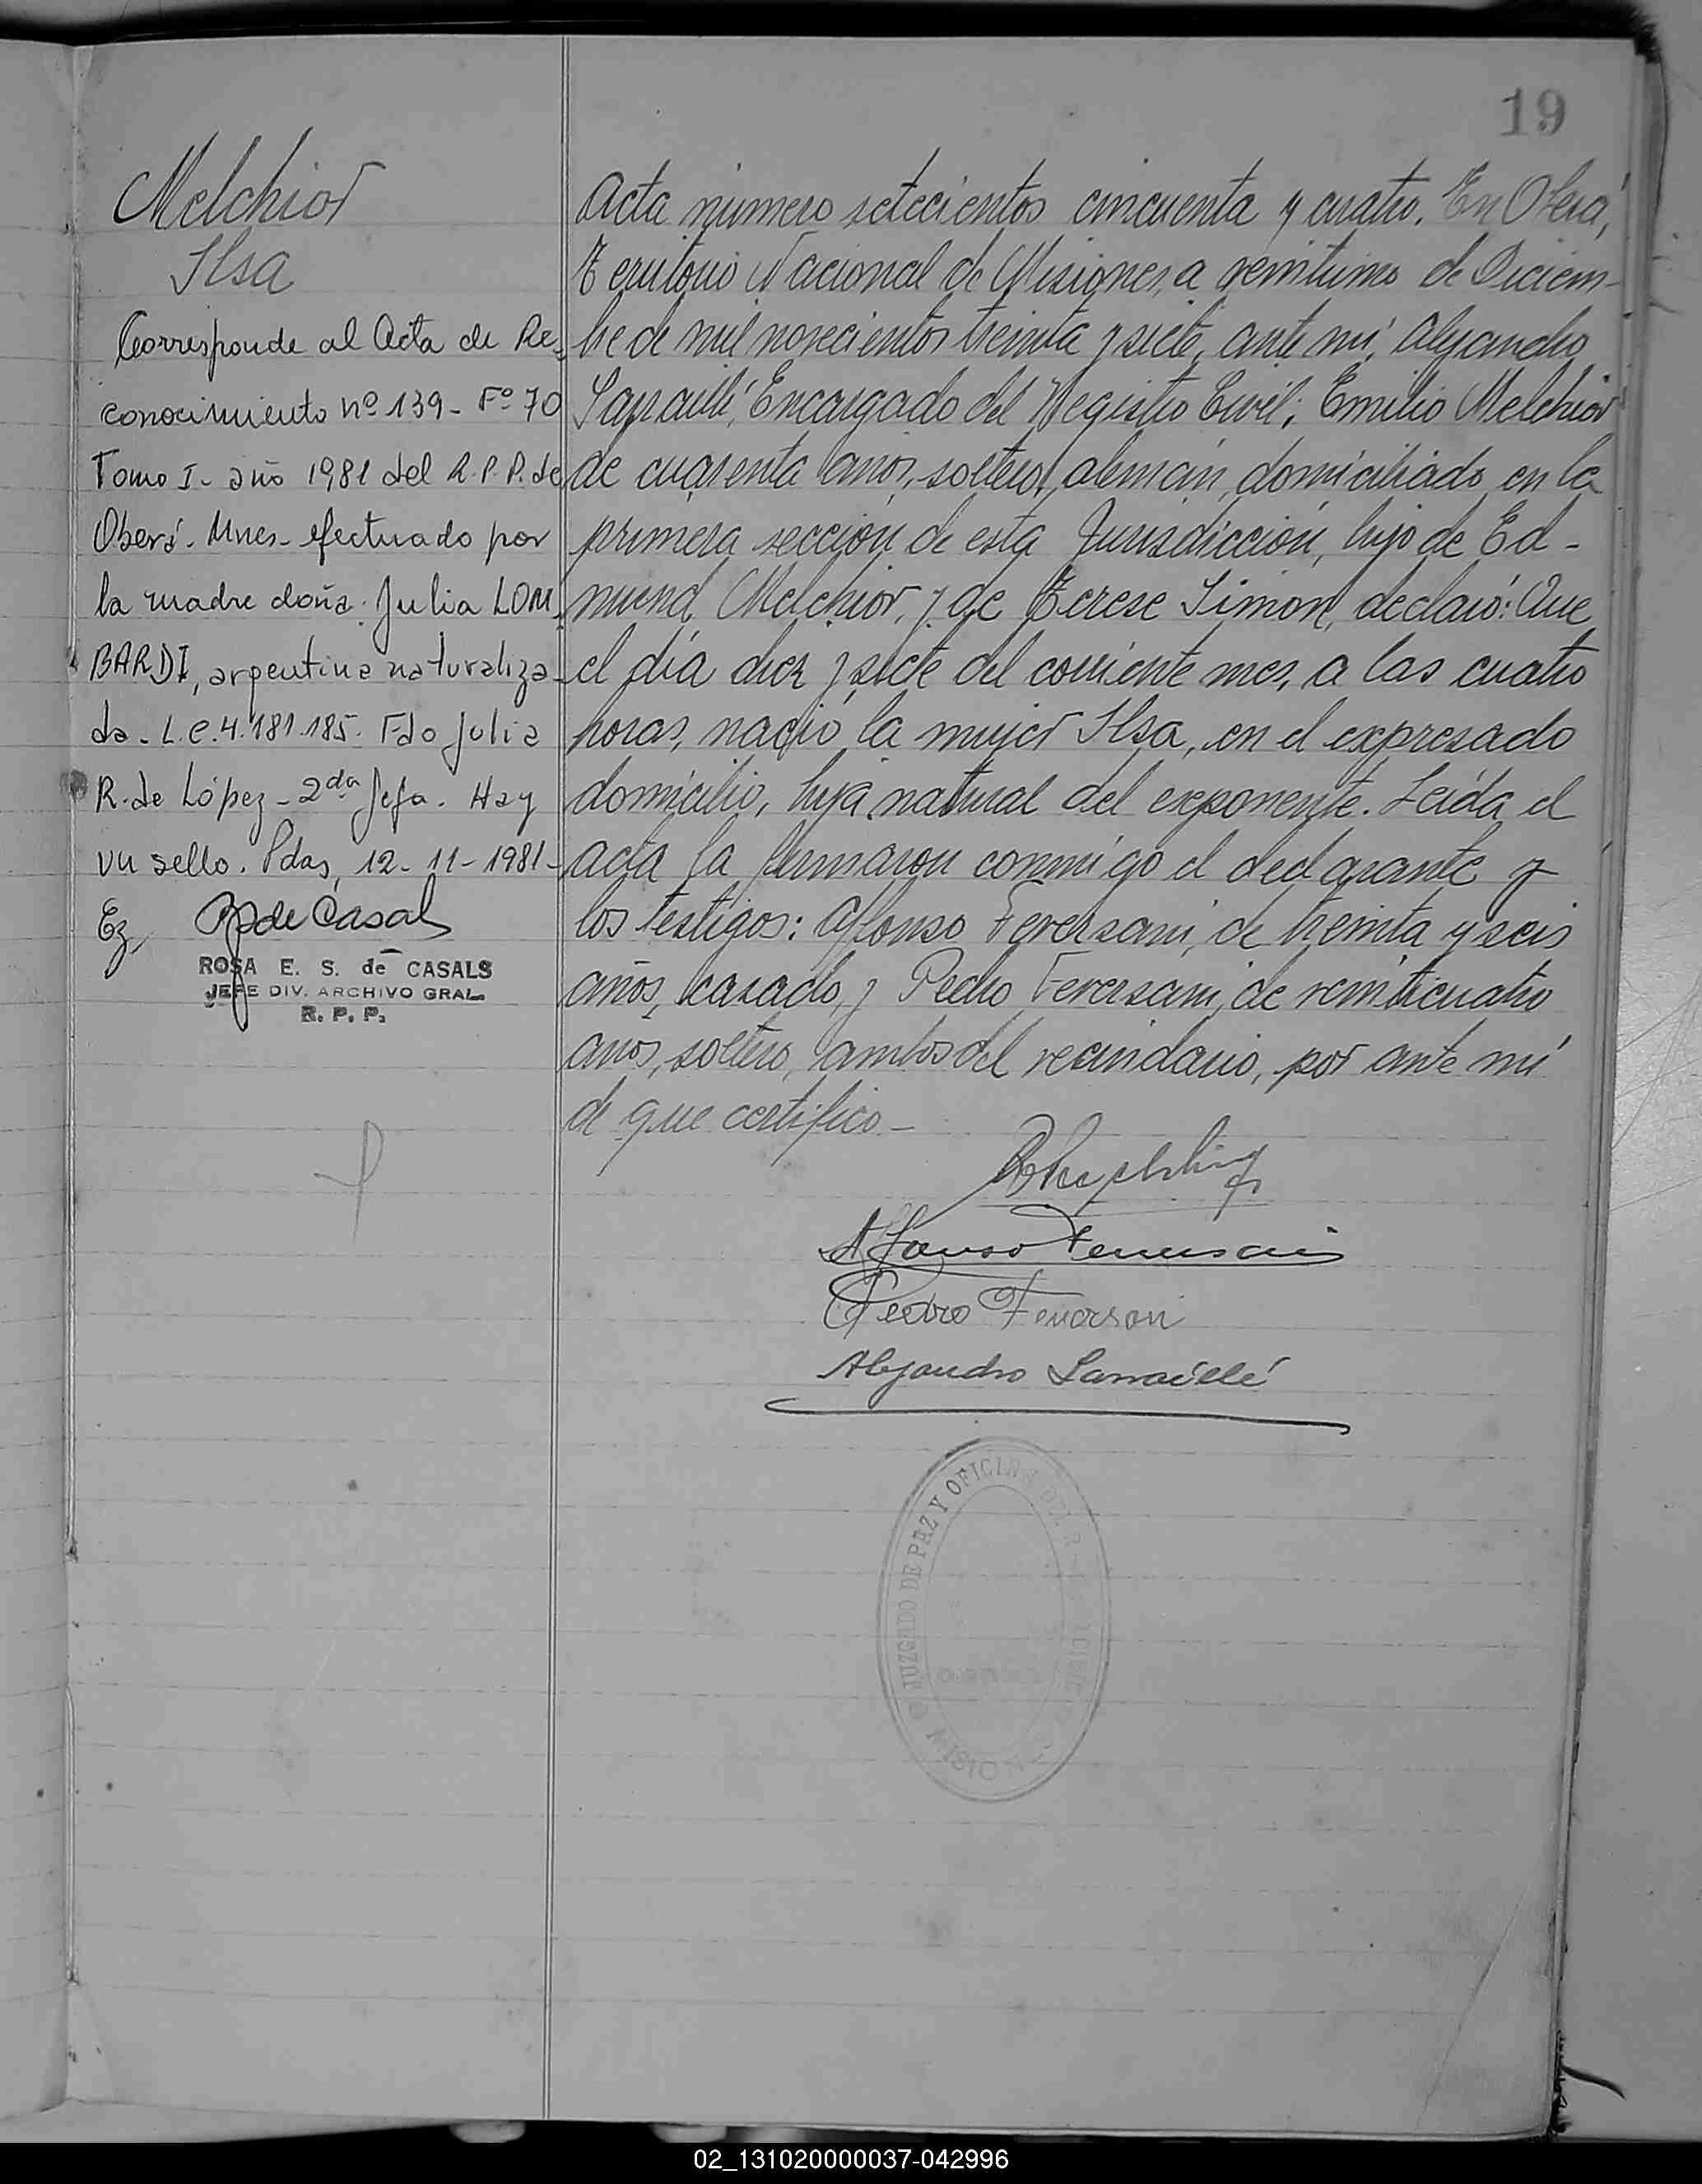 19
Melchior
Ilsa
Corresponde al Acta de Re-
conocimiento nº 139 - Fº 70
Tomo I - año 1981 del R.P.P. de
Oberá. Mnes - efectuado por
la madre doña: Julia LOM-
BARDI, argentina naturaliza-
da - L.C. 4.181.185. Fdo Julia
R. de López - 2da Jefa. Hay
un sello. Pdas, 12 - 11 - 1981 -
Ez, R de Casals
ROSA E. S. de CASALS
JEFE DIV. ARCHIVO GRAL.
R. P. P.
Acta número setecientos cincuenta y cuatro. En Oberá,
Territorio Nacional de Misiones, a veintiuno de Diciem-
bre de mil novecientos treinta y siete, ante mí, Alejandro
Sarraillé, Encargado del Registro Civil; Emilio Melchior
de cuarenta años, soltero, alemán, domiciliado en la
primera sección de esta Jurisdicción, hijo de Ed-
mund Melchior, y de Terese Simon, declaró: Que
el día diez y siete del corriente mes, a las cuatro
horas, nació la mujer Ilsa, en el expresado
domicilio, hija natural del exponente. Leída el
acta la firmaron conmigo el declarante y
los testigos: Alfonso Feversani, de treinta y seis
años, casado, y Pedro Feversani, de veinticuatro
años, soltero, ambos del vecindario, por ante mí
de que certifico. -
Alfonso Feversani
Pedro Feversani
Alejandro Sarraillé
JUZGADO DE PAZ Y OFICINA DEL R
MISIONES
02_131020000037-042996